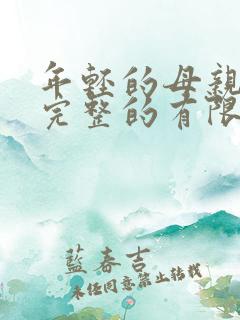 年轻的母親
完整的有限
藍春吉
未経同意禁止转載